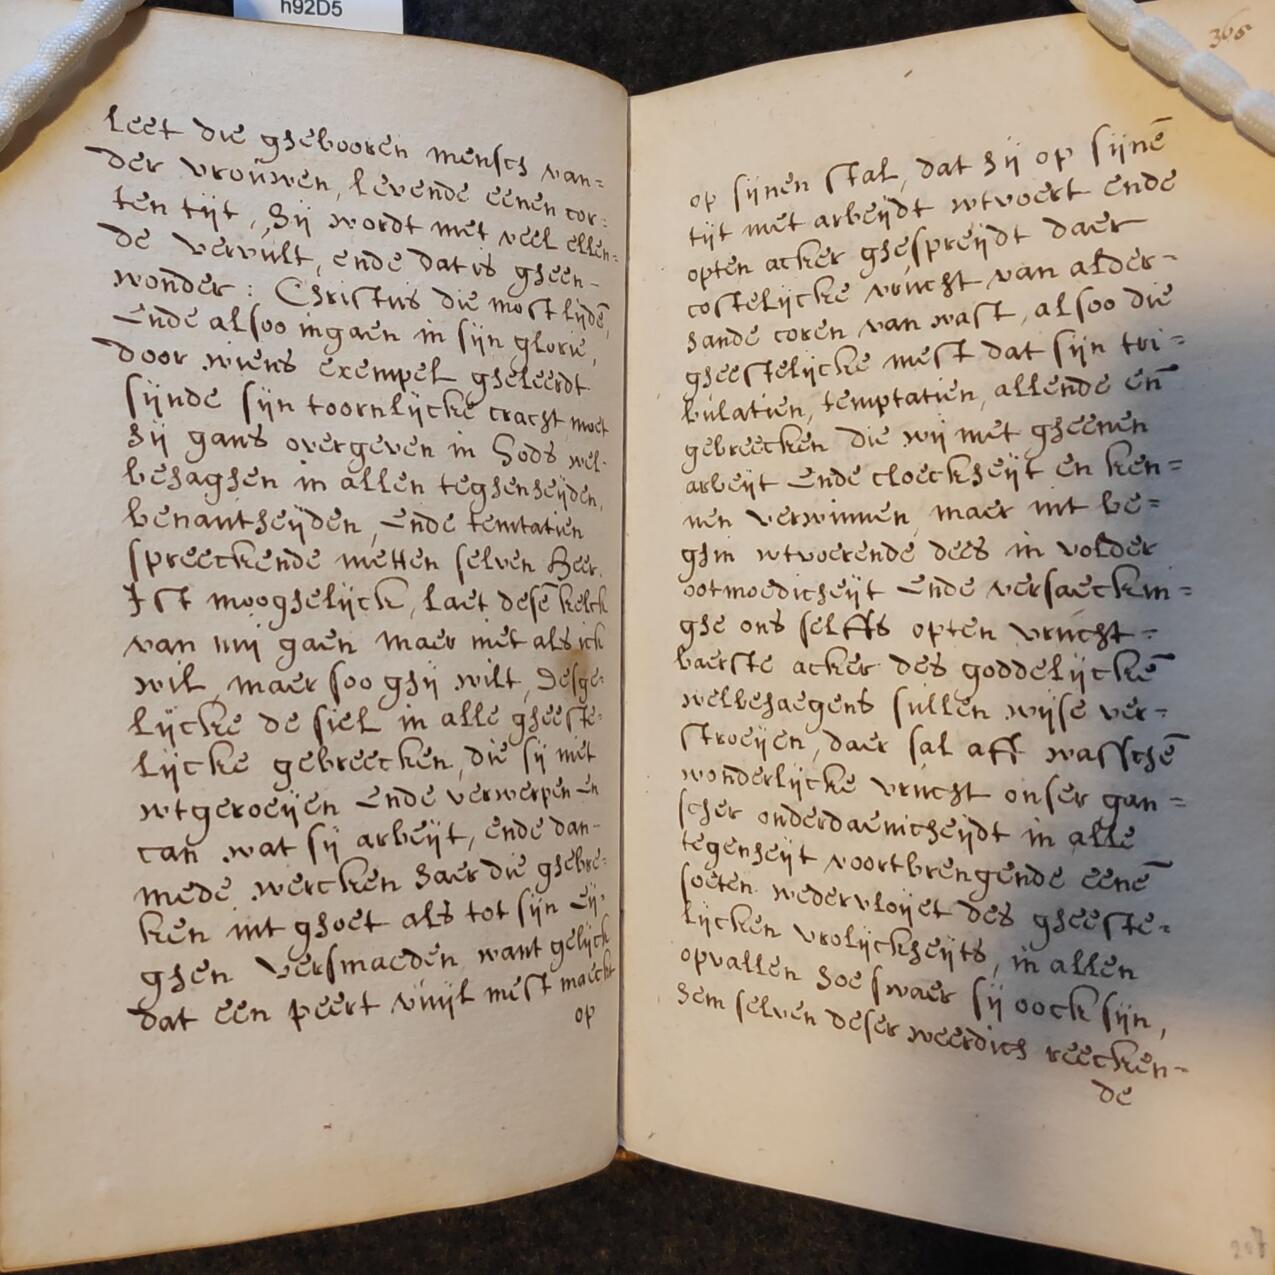 h92D5
leet die ghebooren mensch van=
der vrouwen, levende eenen cor=
ten tijt, hij wordt met veel ellen=
de vervult, ende dat is gheen-
wonder: Christus die most lijdē,
ende alsoo ingaen in sijn glorie,
door wiens exempel gheleerdt
sijnde sijn toornlijcke cracht moet
hij gans overgeven in Gods wel-
behaghen in allen teghenheijden,
benautheijden, ende temtatien
spreeckende metten selven Heer.
Ist mooghelijck, laet desē kelck
van mij gaen maer niet als ick
wil, maer soo ghij wilt, desge=
lijcke de siel in alle gheeste=
lijcke gebreecken, die sij niet
wtgeroeijen ende verwerpen en
can wat sij arbeijt, ende dan-
mede wercken haer die ghebre=
ken int ghoet als tot sijn eij-
ghen versmaeden want gelijck
dat een peert vuijl mest maeckt
op
365
op sijnen stal, dat hij op sijnē
tijt met arbeijdt wtvoert ende
opten acker ghespreijdt daer
costelijcke vrucht van alder-
hande coren van wast, alsoo die
gheestelijcke mest dat sijn tri=
bulatien, temptatien, allende eñ
gebreecken die wij met gheenen
arbeijt ende cloeckheijt en ken=
nen verwinnen, maer int be=
ghin wtvoerende dees in volder
ootmoedicheijt ende versaeckin=
ghe ons selffs opten vrucht=
baerste acker des goddelijckē
welbehaegens sullen wijse ver-
stroeijen, daer sal aff wasschē
wonderlijcke vrucht onser gan=
scher onderdaenicheijdt in alle
tegenheijt voortbrengende eenē
soeten wedervloijet des gheeste=
lijcken vrolijckheijts, in allen
opvallen hoe swaer sij oock sijn,
hem selven deser weerdich reecken-
de